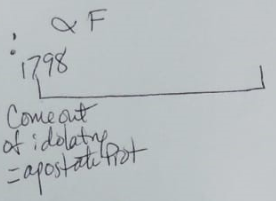 : & F
1798
Come out
of idolatry
= apostate Prot